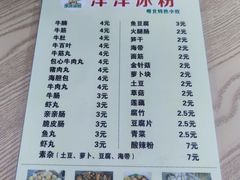 洋洋冰粉
粤式特色小吃
牛腩 4元
牛筋 4元
牛肚 4元
牛百叶 4元
牛筋丸 4元
包心牛肉丸 4元
猪肉丸 4元
海胆包 4元
牛肉丸 4元
牛肠 3元
虾丸 3元
亲亲肠 3元
脆皮肠 3元
鱼丸 3元
虾丸 3元
素杂(土豆、萝卜、豆腐、海带) 7元
鱼豆腐 3元
火腿肠 3元
笋 2元
海带 2元
面筋 2元
金针菇 2元
萝卜块 2元
土豆 2元
草菇 2元
莲藕 2元
腐竹 2.5元
豆腐片 2.5元
青菜 2.5元
酸辣粉 7元